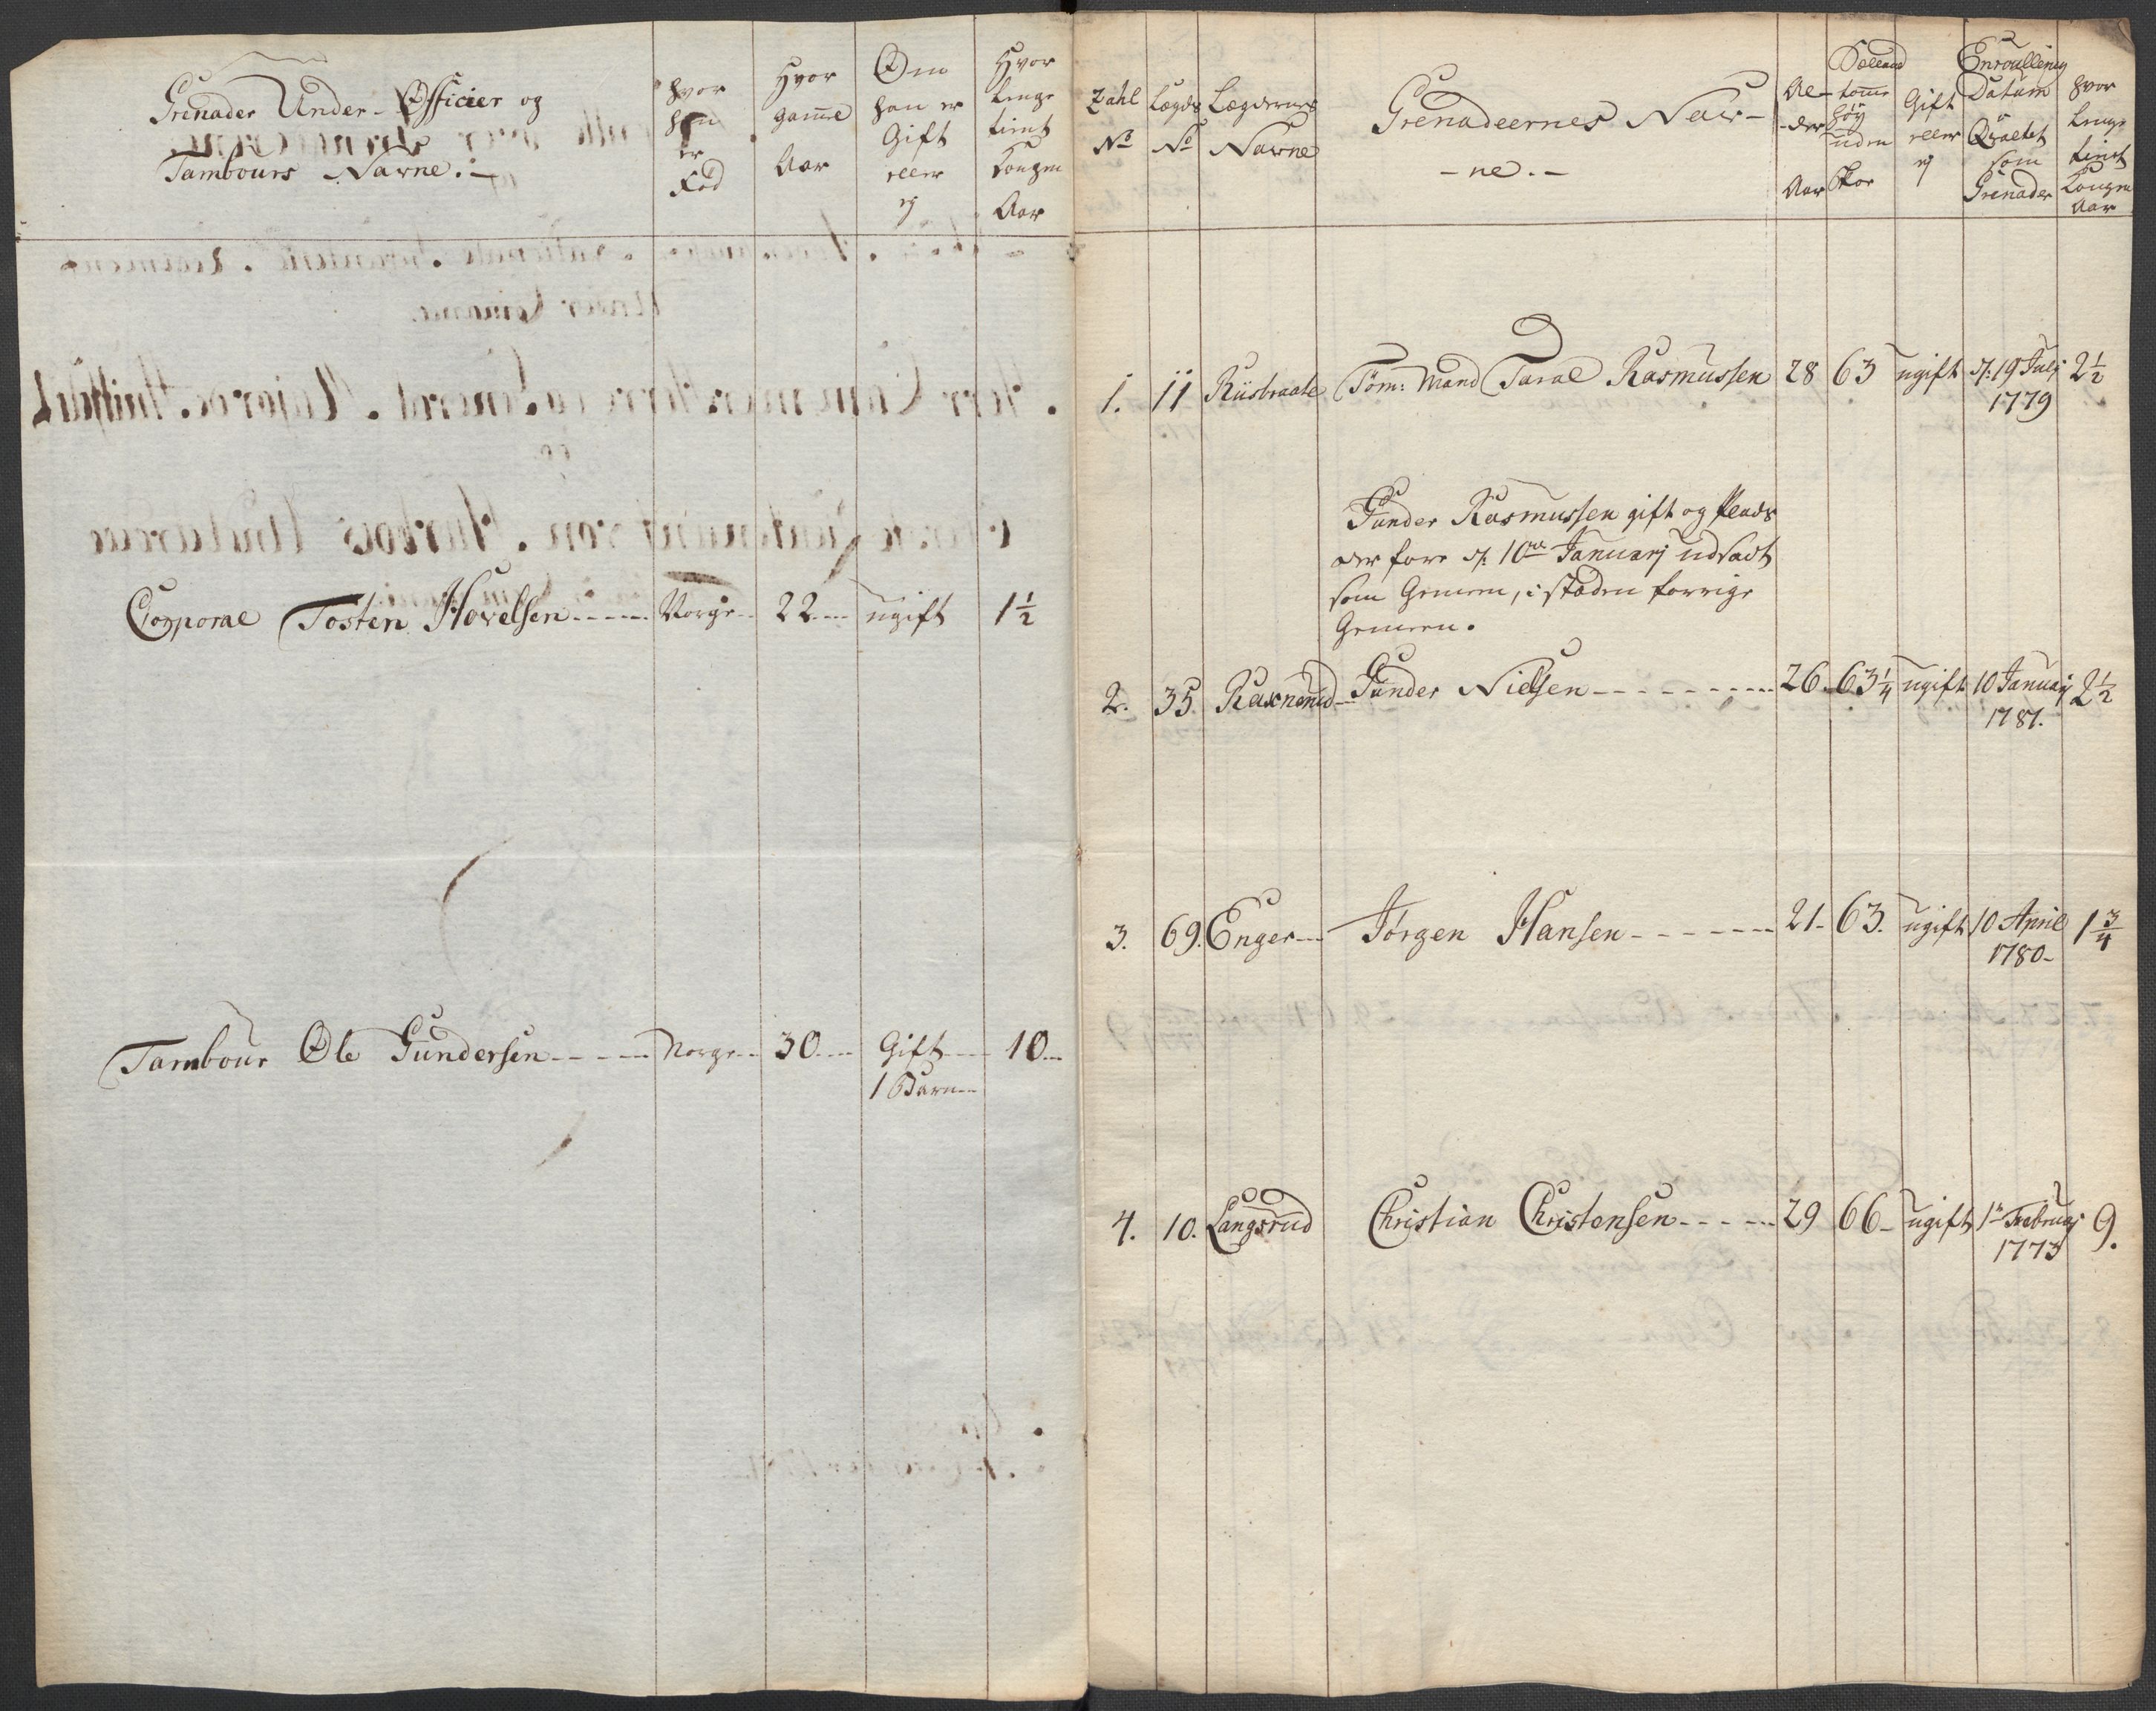 Grenader Under-Officier og
Tambours Navne.
hvor
han
er
Fød
Hvor
gaml
Aar
Om
han er
Gift
eller
ej
Hvor
lenge
tient
Kongen
Aar
Corporal Tosten Hovelsen Norge 22 ugift 1½
Tambour Ole Gundersen Norge 30 Gift 10
1 Barn
Zahl
No
Lægds
No
Lægdernes
Navne
Grenadeernes Nav-
-ne.-
Al-
der
Aar
tomme
høy
uden
Skoe
Gift
eller
ej
Enroullerings
Datum
Qvalitet
som
Grenader
hvor
lenge
tient
Kongen
Aar
1. 11 Riisbraate Tøm: Mand Taral Rasmussen 28 63 ugift d. 19 Julj 2½
1779
Gunder Rasmussen gift og
der fore d. 10de Januarj udsadt
som Gemen, i stæden forrige
Gemeen.
2. 35. Gunder Nielsen 26. 63¼ ugift 10 Januarj 2½
1781.
3. 69. Enger Jørgen Hansen 21- 63. ugift 10 April 1¾
1780-
4. 10. Langsrud Christian Christensen 29 66- ugift 1te Februarj 9.
1773